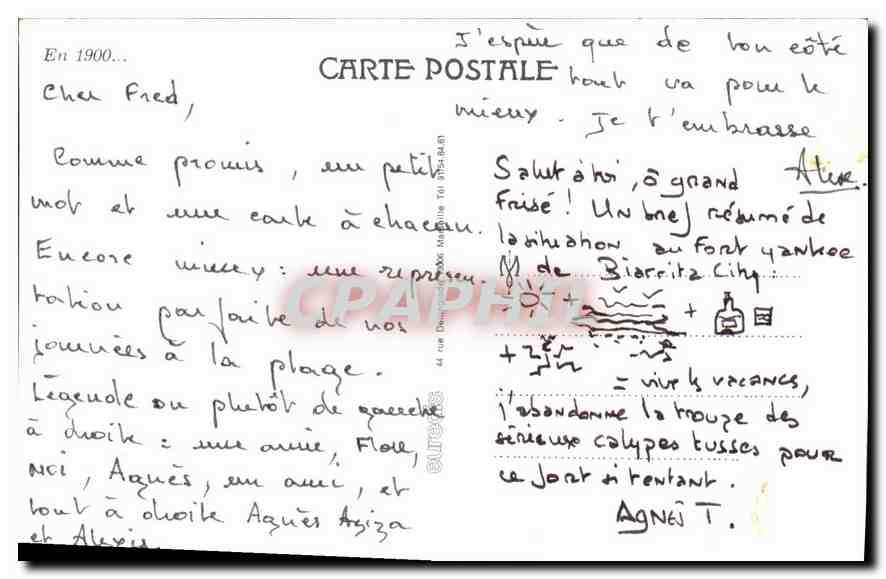 En 1900...
CARTE POSTALE
Cher Fred,
Comme promis, un petit
mot et une carte à chacun.
Encore mieux : une représen
tation parfaite de nos
journées à la plage.
Légende ou plutôt de gauche
à droite : une amie, Flore,
moi, Agnès, un ami, et
tout à droite Agnès Aziza
et Alexis.
J'espère que de ton côté
tout va pour le
mieux. Je t'embrasse
Alexe.
Salut à toi, ô grand
Frisé ! Un bref résumé de
la situation au Fort yankee
de Biarritz City :
+ +
+
= vive les vacances,
j'abandonne la troupe des
sérieux calypes tusses pour
ce fort si tentant.
AGNÈS T.
44 rue Marseille Tél 91/54.84.61
CPAPHIL